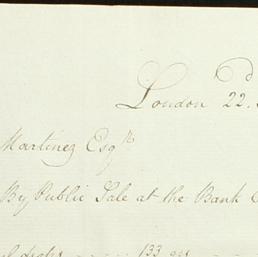 London 22d
Martinez Esqr
By Public Sale at the Bank
133